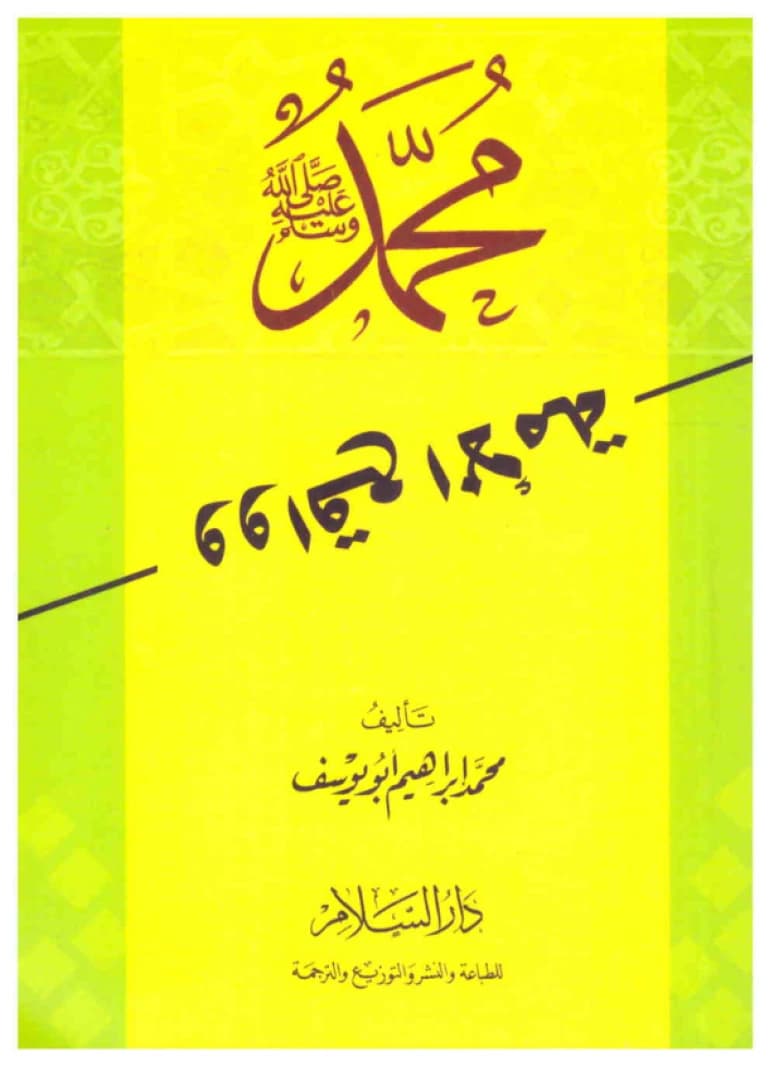 مُحَمَّدٌ
صَلَّى اللَّهُ
عَلَيْهِ
وَسَلَّمَ
وواقع الأمة
تَأليفُ
محمَّد إبراهيم أبو يوسف
دَارُ السَّلَامِ
للطباعة والنشر والتوزيع والترجمة